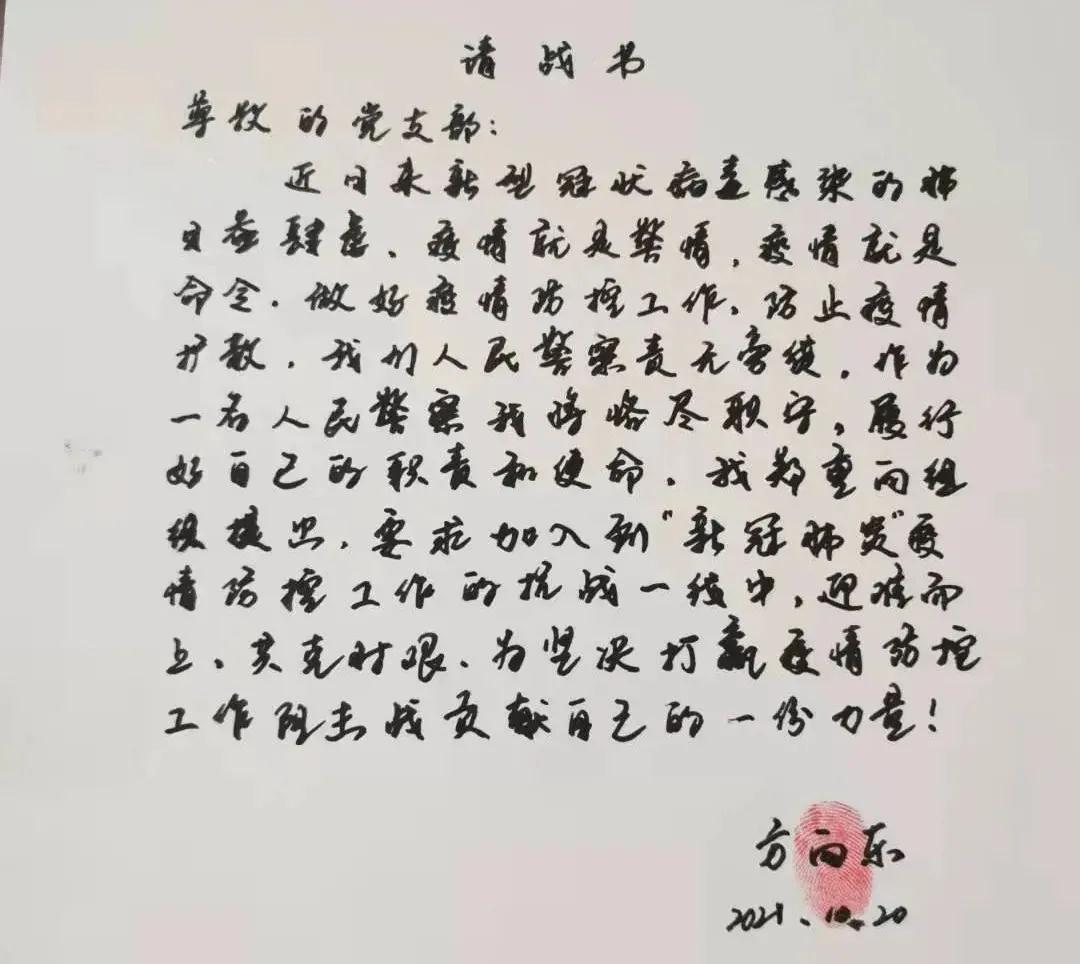 请战书
尊敬的党支部:
近日来新型冠状病毒感染的肺
日益肆虐、疫情就是警情,疫情就是
命令.做好疫情防控工作、防止疫情
扩散.我们人民警察责无旁贷.作为
一名人民警察我将恪尽职守,履行
好自己的职责和使命.我郑重向组
织提出.要求加入到"新冠肺炎"疫
情防控工作的抗战一线中,迎难而
上、共克时艰、为坚决打赢疫情防控
工作阻击战贡献自己的一份力量!
方向东
2021.10.20